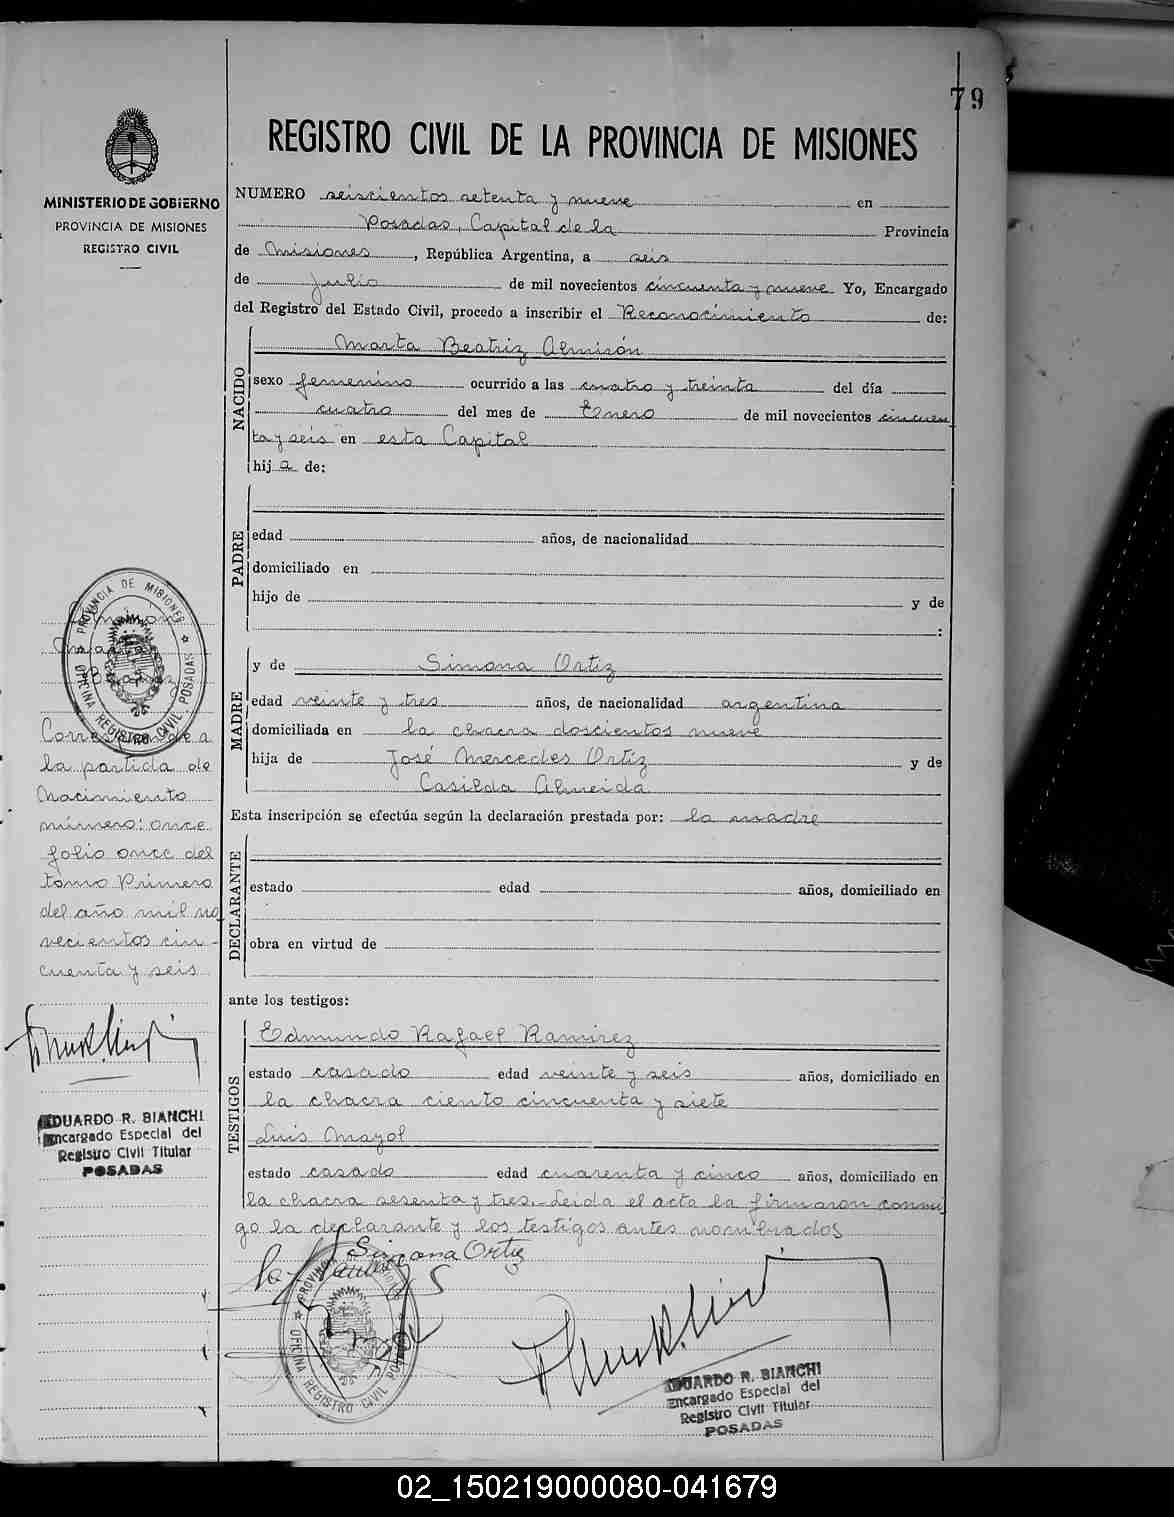 79
REGISTRO CIVIL DE LA PROVINCIA DE MISIONES
MINISTERIO DE GOBIERNO
PROVINCIA DE MISIONES
REGISTRO CIVIL
NUMERO seiscientos setenta y nueve en
Posadas, Capital de la Provincia
de Misiones, República Argentina, a seis
de Julio de mil novecientos cincuenta y nueve Yo, Encargado
del Registro del Estado Civil, procedo a inscribir el Reconocimiento de:
NACIDO
Marta Beatriz Almirón
sexo femenino ocurrido a las cuatro y treinta del día
cuatro del mes de Enero de mil novecientos cincuen
ta y seis en esta Capital
hija de:
PADRE
edad años, de nacionalidad
domiciliado en
hijo de y de
:
MADRE
y de Simona Ortiz
edad veinte y tres años, de nacionalidad argentina
domiciliada en la chacra doscientos nueve
hija de José Mercedes Ortiz y de
Casilda Almeida
Esta inscripción se efectúa según la declaración prestada por: la madre
DECLARANTE
estado edad años, domiciliado en
obra en virtud de
ante los testigos:
TESTIGOS
Edmundo Rafael Ramirez
estado casado edad veinte y seis años, domiciliado en
la chacra ciento cincuenta y siete
Luis Mayol
estado casado edad cuarenta y cinco años, domiciliado en
la chacra sesenta y tres.- Leida el acta la firmaron conmi
go la declarante y los testigos antes nombrados
Simona Ortiz
PROVINCIA DE MISIONES
OFICINA REGISTRO CIVIL POSADAS
EDUARDO R. BIANCHI
Encargado Especial del
Registro Civil Titular
POSADAS
PROVINCIA DE MISIONES
OFICINA REGISTRO CIVIL POSADAS
Corresponde a
la partida de
Nacimiento
número: once
folio once del
tomo Primero
del año mil no
vecientos cin-
cuenta y seis
EDUARDO R. BIANCHI
Encargado Especial del
Registro Civil Titular
POSADAS
02_150219000080-041679